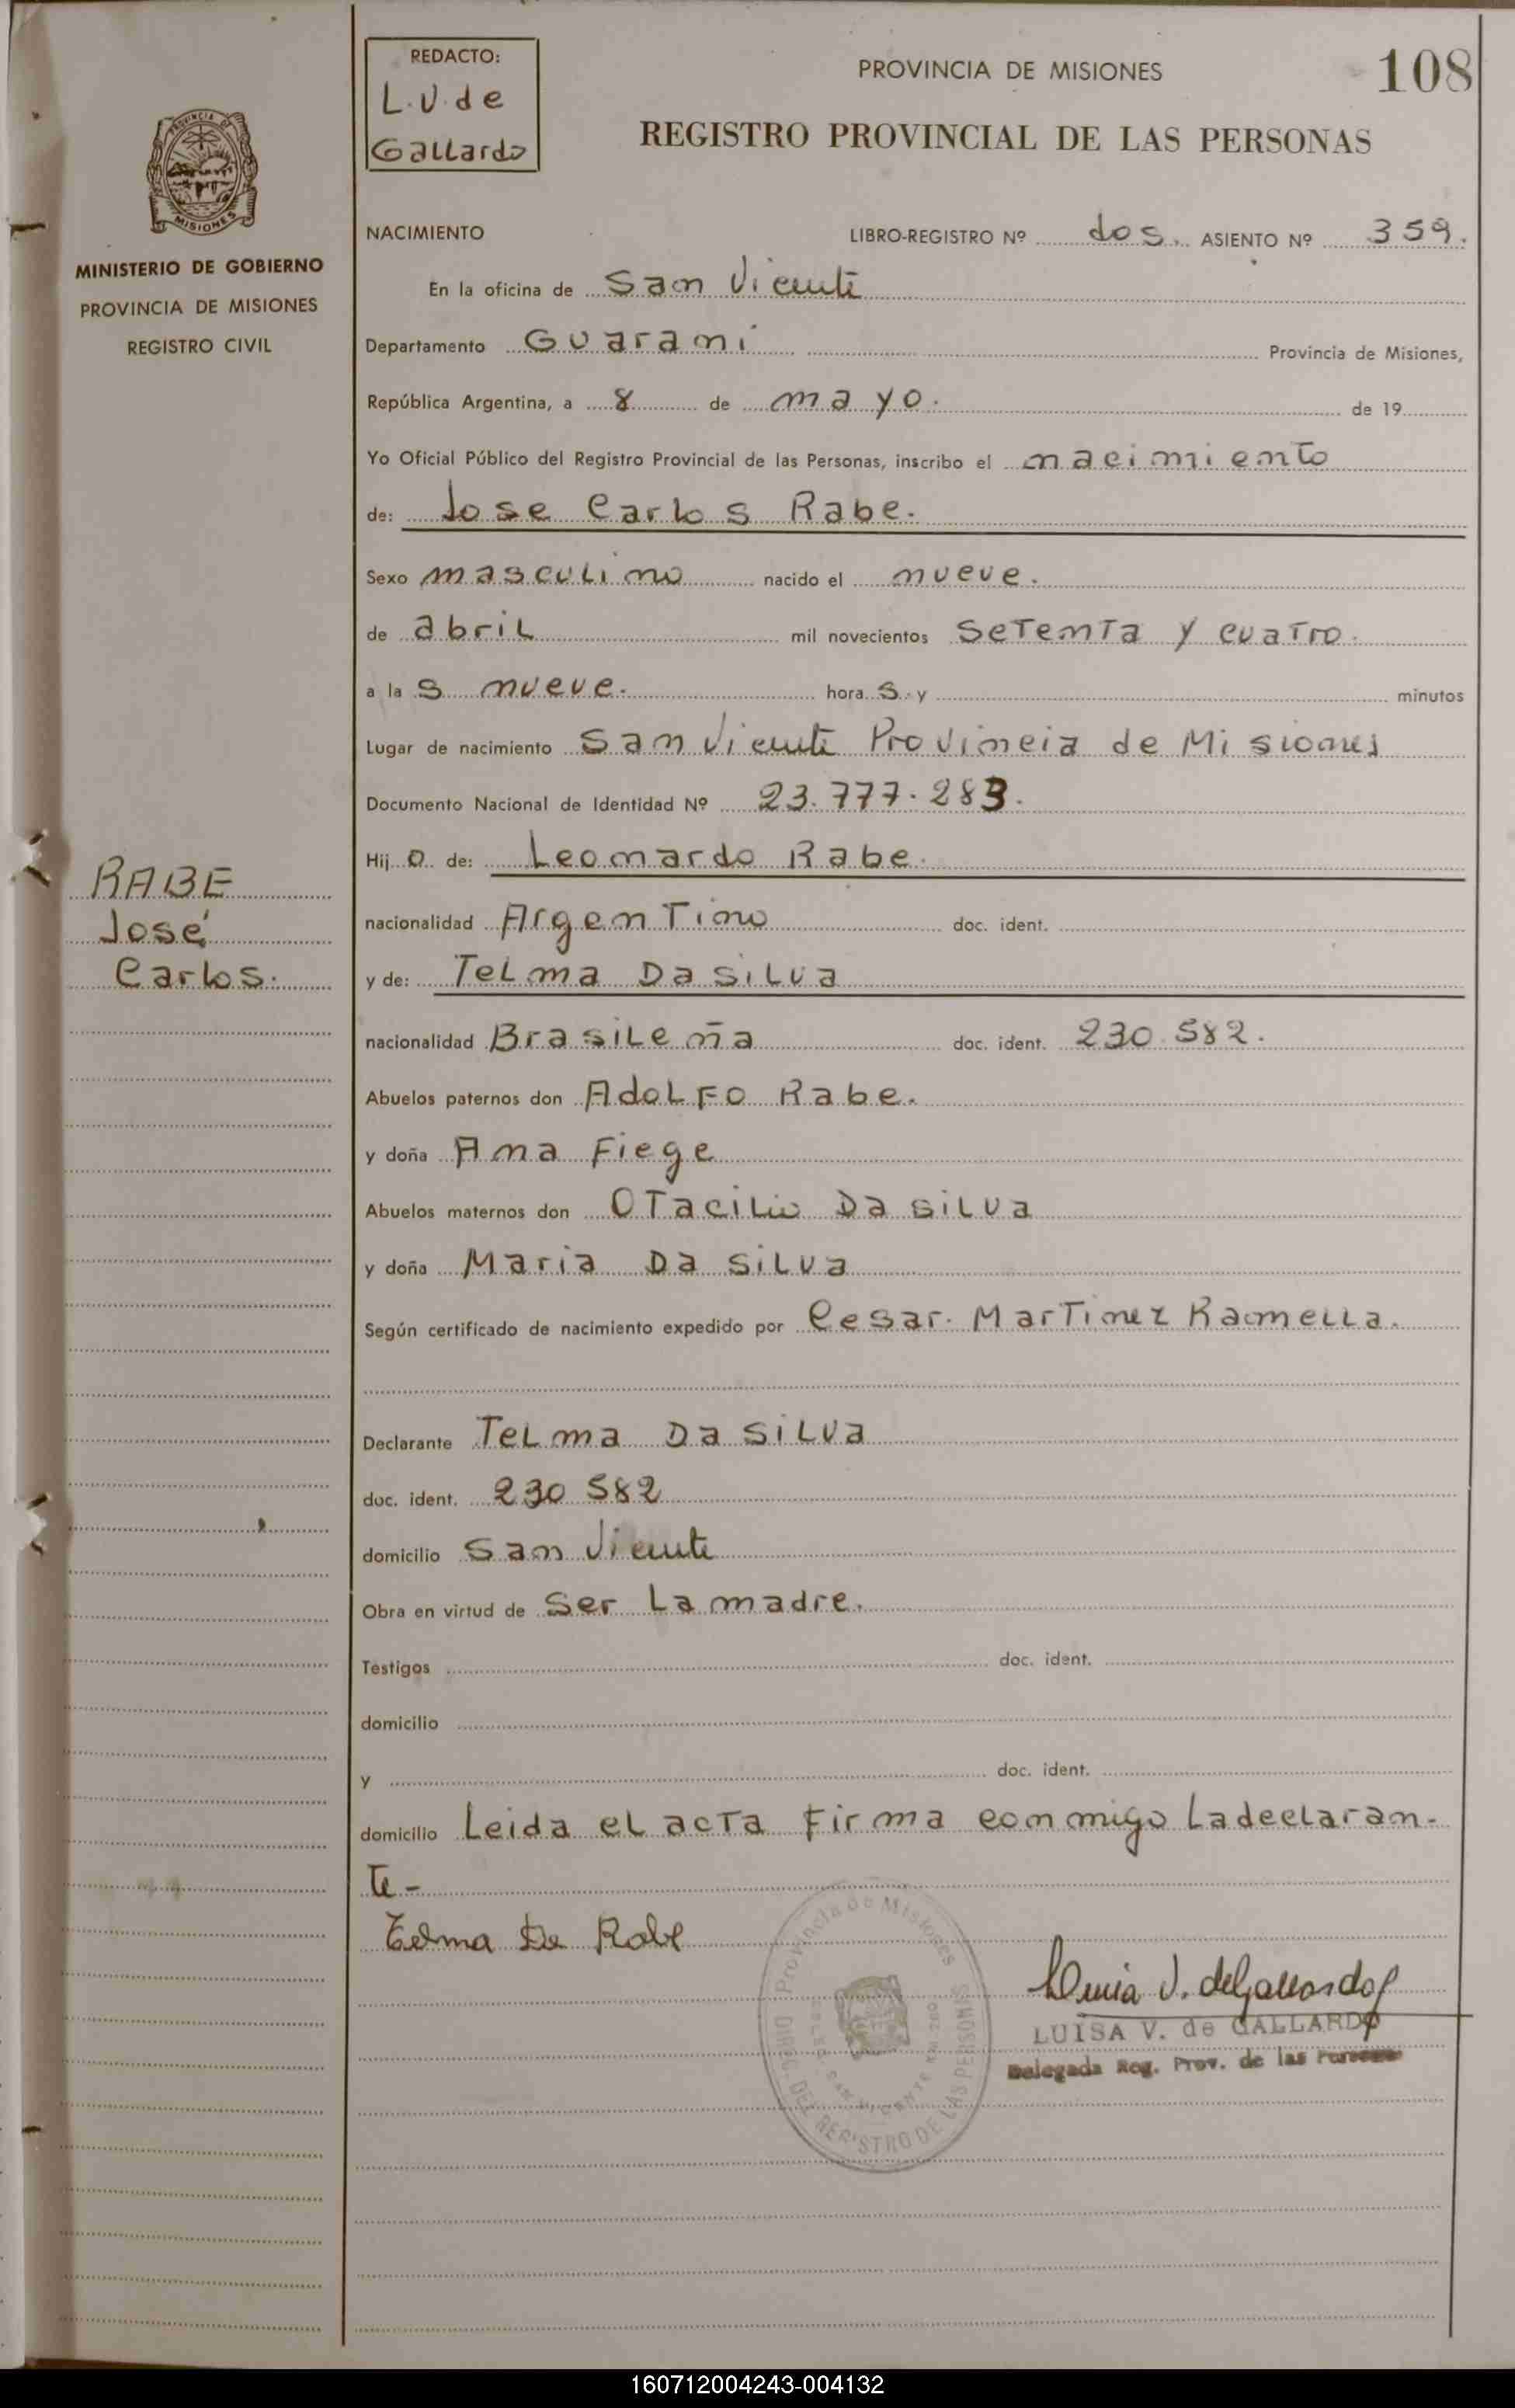 REDACTO:
L.V. de
Gallardo
PROVINCIA DE MISIONES
108
REGISTRO PROVINCIAL DE LAS PERSONAS
PROVINCIA DE
MISIONES
MINISTERIO DE GOBIERNO
PROVINCIA DE MISIONES
REGISTRO CIVIL
NACIMIENTO LIBRO-REGISTRO Nº dos. ASIENTO Nº 359.
En la oficina de San Vicente
Departamento Guarani Provincia de Misiones,
República Argentina, a 8 de mayo. de 19
Yo Oficial Público del Registro Provincial de las Personas, inscribo el nacimiento
de: Jose Carlos Rabe.
Sexo masculino nacido el nueve.
de abril mil novecientos setenta y cuatro.
a la s nueve. hora s y minutos
Lugar de nacimiento San Vicente Provincia de Misiones
Documento Nacional de Identidad Nº 23.777.283.
Hij o de: Leonardo Rabe.
RABE
José
Carlos.
nacionalidad Argentino doc. ident.
y de: Telma Da Silva
nacionalidad Brasileña doc. ident. 230.582.
Abuelos paternos don Adolfo Rabe.
y doña Ana Fiege
Abuelos maternos don Otacilio Da Silva
y doña Maria Da Silva
Según certificado de nacimiento expedido por Cesar. Martinez Ramella.
Declarante Telma Da Silva
doc. ident. 230 582
domicilio San Vicente
Obra en virtud de Ser la madre.
Testigos doc. ident.
domicilio
y doc. ident.
domicilio Leida el acta firma conmigo la declaran-
te-
Telma De Rabe
Provincia de Misiones
DIREC. DEL REGISTRO DE LAS PERSONAS
Luisa V. de Gallardo
LUISA V. de GALLARDO
Delegada Reg. Prov. de las Personas
160712004243-004132